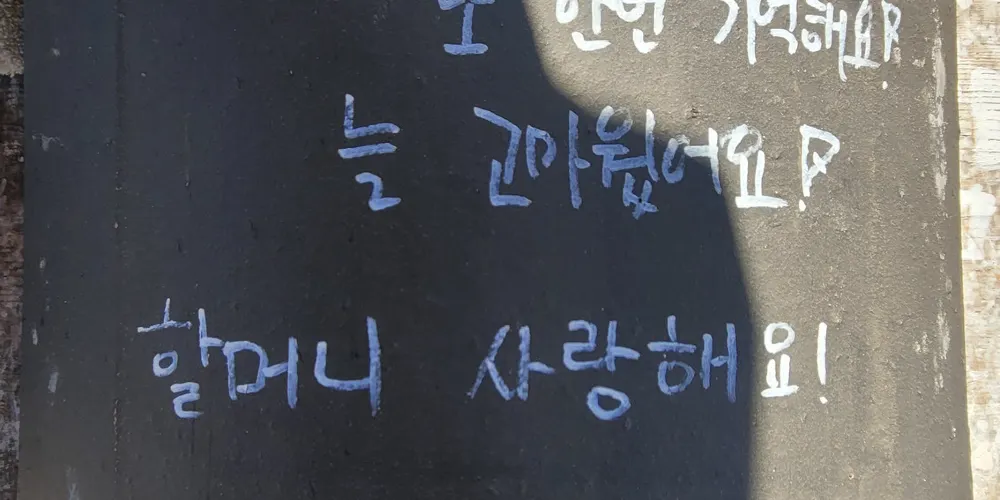 또 한번 기억해요!
늘 고마웠어요!
할머니 사랑해요!